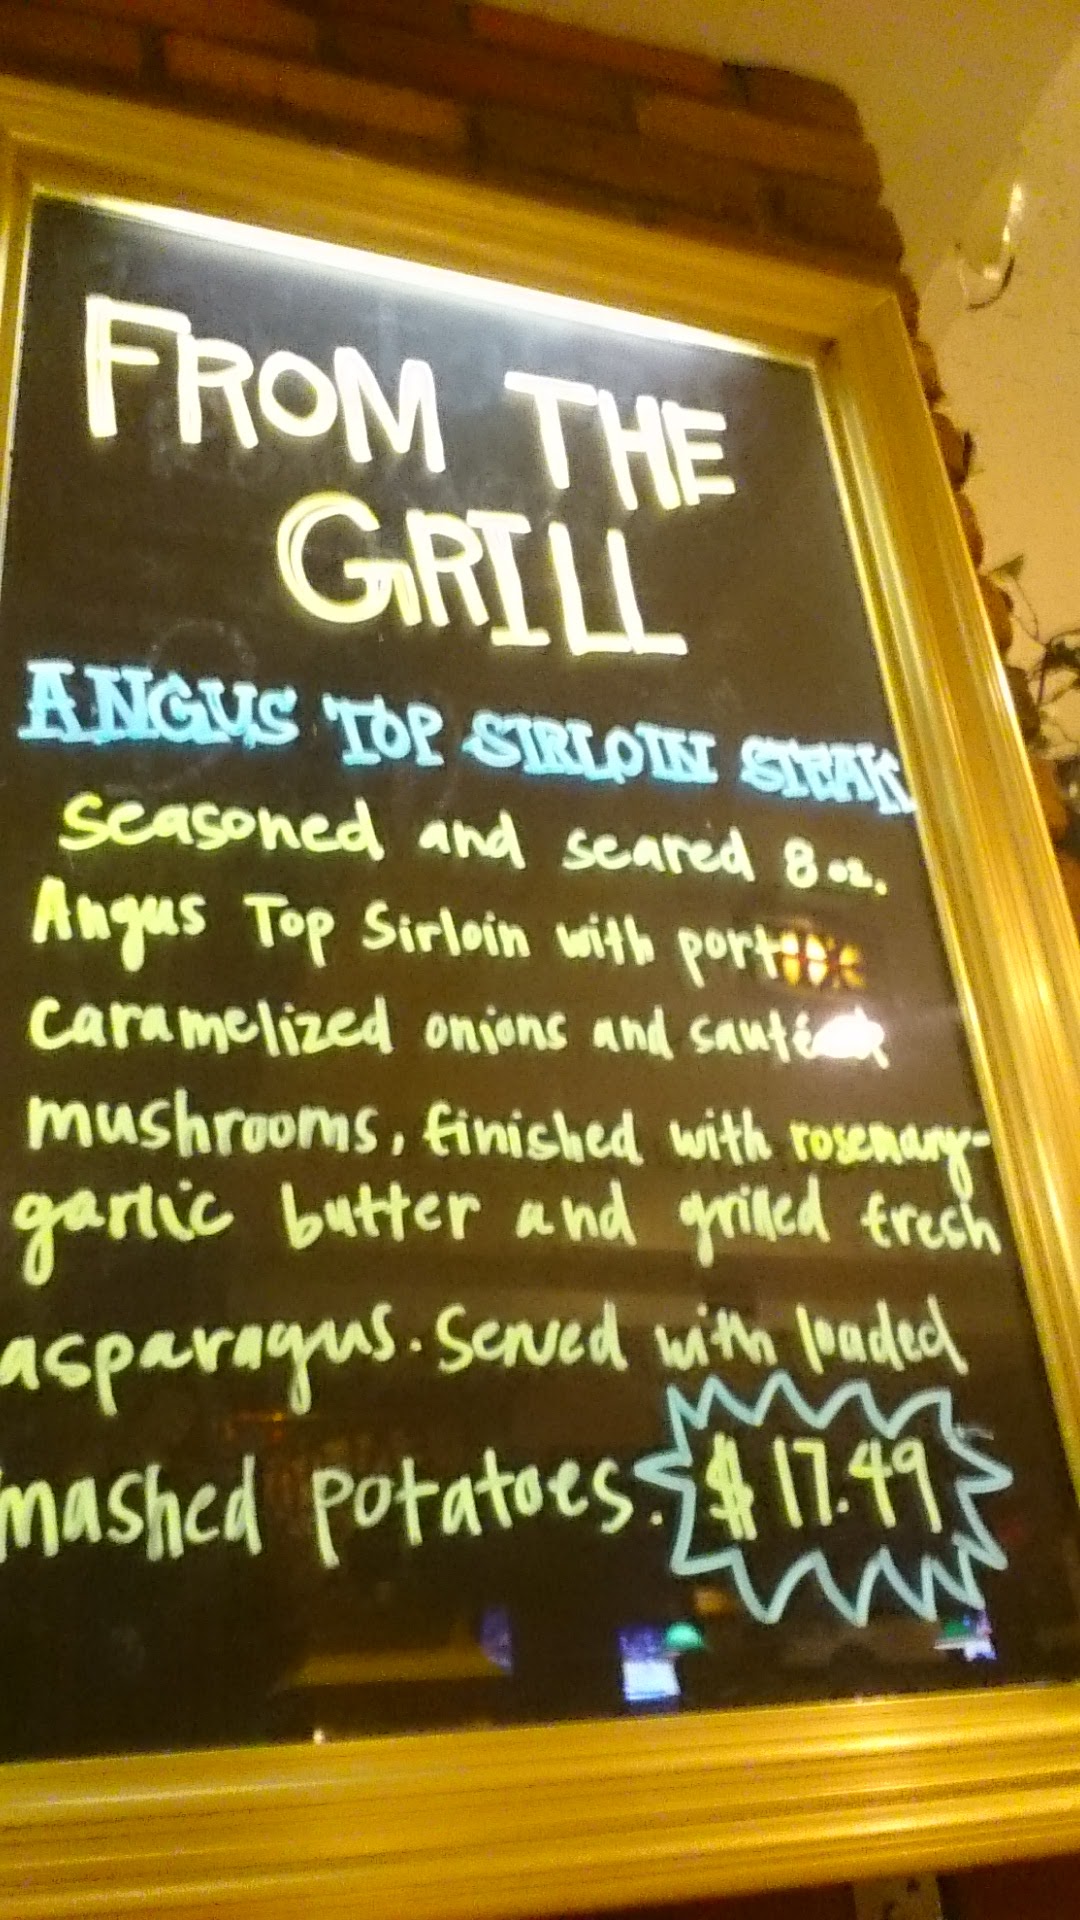 FROM THE
GRILL
ANGUS TOP SIRLOIN STEAK
Seasoned and seared 8 oz.
Angus Top Sirloin with port
caramelized onions and sauteéd
mushrooms, finished with rosemary-
garlic butter and grilled fresh
asparagus. Served with loaded
mashed potatoes. $17.49